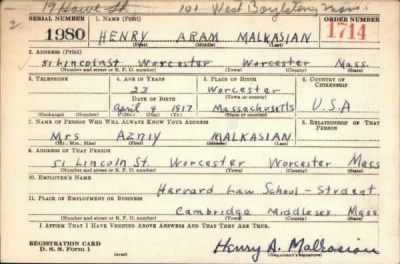 19 Howe St. 101 West Boylston, Mass.
SERIAL NUMBER 1. NAME (Print) ORDER NUMBER
1980 HENRY ARAM MALKASIAN 1714
(First) (Middle) (Last)
2. ADDRESS (Print)
51 Lincoln St Worcester Worcester Mass.
(Number and street or R. F. D. number) (Town) (County) (State)
3. TELEPHONE 4. AGE IN YEARS 5. PLACE OF BIRTH 6. COUNTRY OF CITIZENSHIP
23 Worcester
DATE OF BIRTH (Town or county)
April 9 1917 Massachusetts U.S.A
(Exchange) (Number) (Mo.) (Day) (Yr.) (State or country)
7. NAME OF PERSON WHO WILL ALWAYS KNOW YOUR ADDRESS 8. RELATIONSHIP OF THAT PERSON
Mrs MALKASIAN
(Mr., Mrs., Miss) (First) (Middle) (Last)
9. ADDRESS OF THAT PERSON
51 Lincoln St. Worcester Worcester Mass
(Number and street or R. F. D. number) (Town) (County) (State)
10. EMPLOYER'S NAME
Harvard Law School - Student
11. PLACE OF EMPLOYMENT OR BUSINESS
Cambridge Middlesex Mass
(Number and street or R. F. D. number) (Town) (County) (State)
I AFFIRM THAT I HAVE VERIFIED ABOVE ANSWERS AND THAT THEY ARE TRUE.
REGISTRATION CARD
D. S. S. Form 1 (over) Henry A. Malkasian
(Registrant's signature)